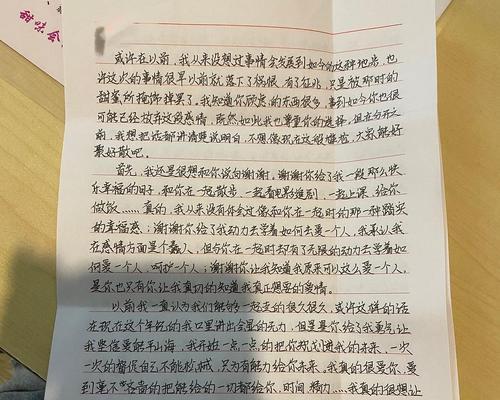 甜味会
或许在以前,我从来没想过事情会发展到如今的这种地步,也
许这次的事情很早以前就落下了祸根,有了征兆,只是被那时的
甜蜜所掩饰掉罢了。我知道你顾虑的东西很多,事到如今你也很
可能已经放弃这段感情,既然如此我也尊重你的选择,但在分开之
前,我想把话都讲清楚说明白,不想像现在这般尴尬,大家能好
聚好散吧。
首先,我还是很想和你说句谢谢。谢谢你给了我一段那么快
乐幸福的日子,和你在一起散步,一起看电影追剧,一起上课,给你
做饭……真的,我从来没有体会过像和你在一起时的那一种踏实
的幸福感;谢谢你给了我动力去学着如何去爱一个人,我承认我
在感情方面是个蠢人,但与你在一起却有了无限的动力去学着如
何爱一个人,呵护一个人;谢谢你让我知道我原来可以这么爱一个人,
是你也只有你让我真切的知道我真正想要的爱情。
以前我一直认为我们能够一起走的很久很久,或许这样的话
在现在这个年纪的我口里讲出会显的无力,但是是你给了我勇气让
我坚信爱能平山海,我开始一点一点的把你规划进我的未来,一次
一次的督促自己不能放纵,只为有能力给你未来。我真的很爱你,爱
到毫不吝啬的把能给的一切都给你,时间、精力……我真的很想让